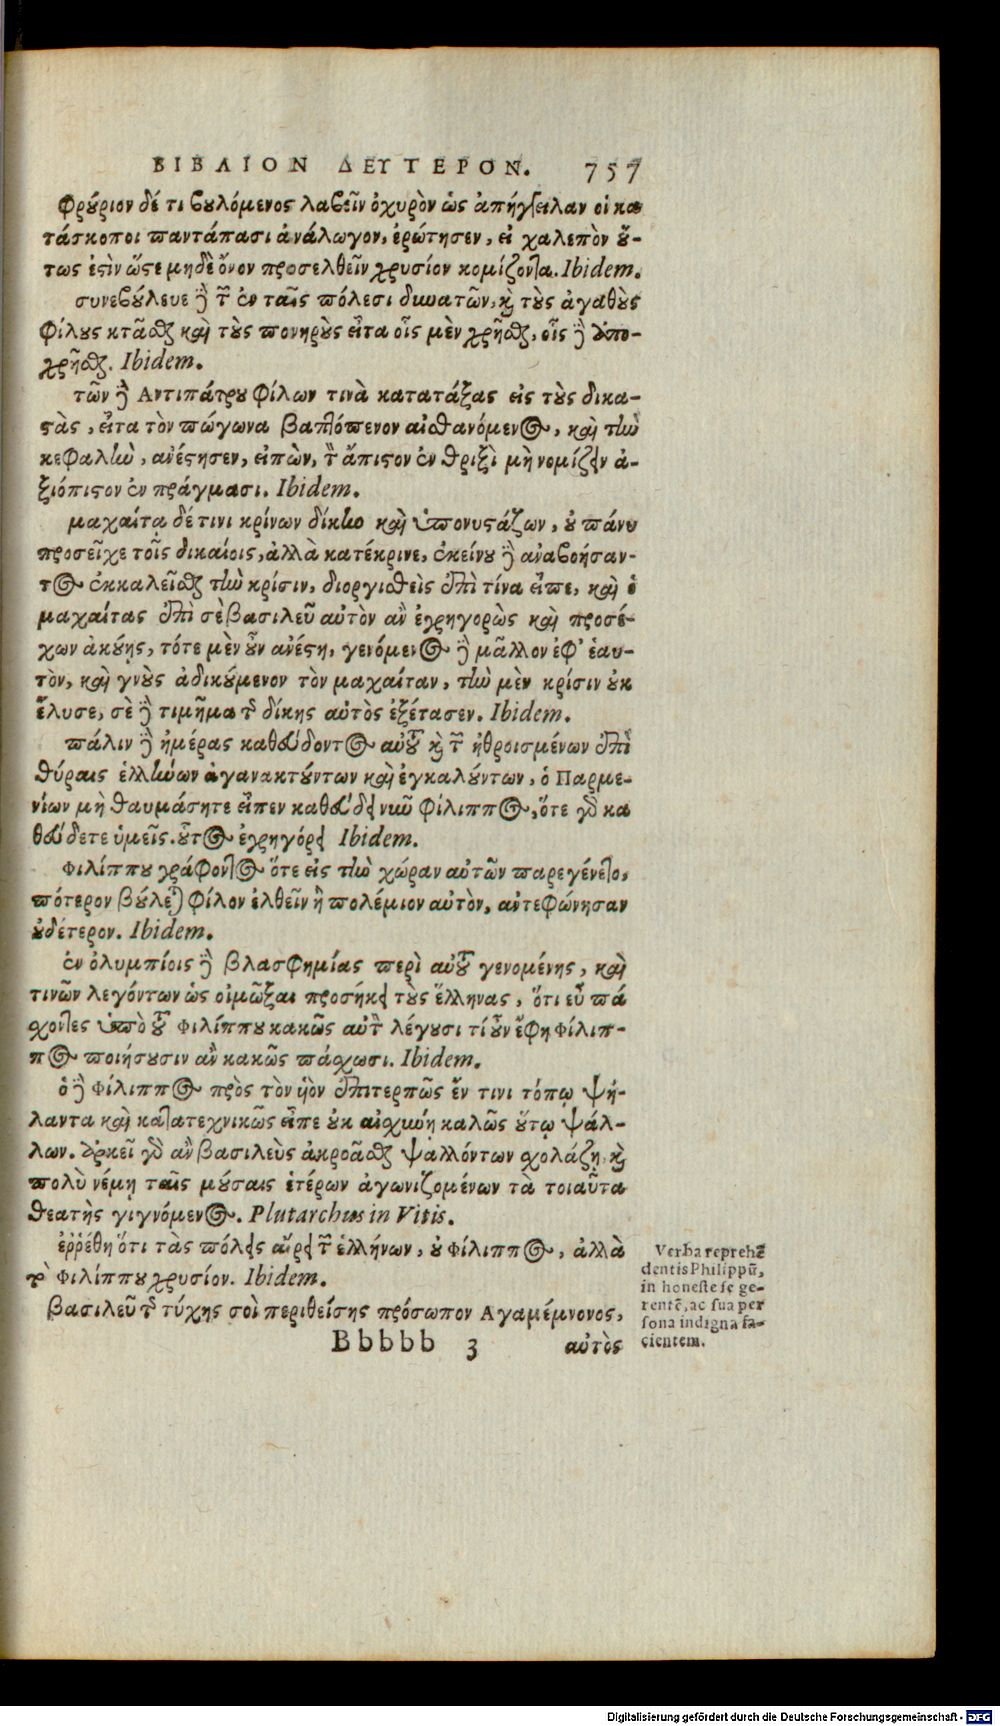 ΒΙΒΛΙΟΝ ΔΕΥΤΕΡΟΝ. 757
φρούριον δέ τι βουλόμενος λαβεῖν ὀχυρὸν ὡς ἀπήγγειλαν οἱ κα
τάσκοποι παντάπασι ἀνάλωγον, ἐρώτησεν, εἰ χαλεπὸν οὕ-
τως ἐστὶν ὥστε μηδὲ ὄνον προσελθεῖν χρυσίον κομίζοντα. Ibidem.
συνεβούλευε δὲ τῶν ἐν ταῖς πόλεσι δυνατῶν, καὶ τοὺς ἀγαθοὺς
φίλους κτᾶσθαι καὶ τοὺς πονηροὺς εἶτα οἷς μὲν χρῆσθαι, οἷς δὲ ἀπο-
χρῆσθαι. Ibidem.
τῶν δὲ Αντιπάτρου φίλων τινὰ κατατάξας εἰς τοὺς δικα-
στὰς, εἶτα τὸν πώγωνα βαπτόπενον αἰσθανόμενος, καὶ τὴν
κεφαλὴν, ἀνέστησεν, εἰπὼν, τὸν ἄπιστον ἐν θριξὶ μὴ νομίζειν ἀ-
ξιόπιστον ἐν πράγμασι. Ibidem.
μαχαίτᾳ δέ τινι κρίνων δίκην καὶ ὑπονυστάζων, οὐ πάνυ
προσεῖχε τοῖς δικαίοις, ἀλλὰ κατέκρινε, ἐκείνου δὲ ἀναβοήσαν-
τος ἐκκαλεῖσθαι τὴν κρίσιν, διοργισθεὶς ἐπὶ τίνα εἶπε, καὶ ὁ
μαχαίτας ἐπὶ σὲ βασιλεῦ αὐτὸν ἂν ἐγρηγορὼς καὶ προσέ-
χων ἀκούῃς, τότε μὲν οὖν ἀνέστη, γενόμενος δὲ μᾶλλον ἐφ' ἑαυ-
τὸν, καὶ γνοὺς ἀδικούμενον τὸν μαχαίταν, τὴν μὲν κρίσιν οὐκ
ἔλυσε, σὲ δὲ τιμῆμα τῆς δίκης αὐτὸς ἐξέτασεν. Ibidem.
πάλιν δὲ ἡμέρας καθεύδοντος αὐτοῦ καὶ τῶν ἠθροισμένων ἐπὶ
θύραις ἑλλήνων ἀγανακτούντων καὶ ἐγκαλούντων, ὁ Παρμε-
νίων μὴ θαυμάσητε εἶπεν καθεύδει νῦν φίλιππος, ὅτε γὰρ κα
θεύδετε ὑμεῖς. οὗτος ἐγρηγόρει Ibidem.
Φιλίππου γράφοντος ὅτε εἰς τὴν χώραν αὐτῶν παρεγένετο,
πότερον βούλεται φίλον ἐλθεῖν ἢ πολέμιον αὐτὸν, ἀντεφώνησαν
οὐδέτερον. Ibidem.
ἐν ὀλυμπίοις δὲ βλασφημίας περὶ αὐτοῦ γενομένης, καὶ
τινῶν λεγόντων ὡς οἰμῶξαι προσήκει τοὺς ἕλληνας, ὅτι εὖ πά
σχοντες ὑπὸ τοῦ Φιλίππου κακῶς αὐτὸν λέγουσι τί οὖν ἔφη Φίλιπ-
πος ποιήσουσιν ἂν κακῶς πάσχωσι. Ibidem.
ὁ δὲ Φίλιππος πρὸς τὸν ὑὸν ἐπιτερπῶς ἔν τινι τόπῳ ψή-
λαντα καὶ κατατεχνικῶς εἶπε οὐκ αἰσχύνῃ καλῶς οὕτω ψάλ-
λων. ἀρκεῖ γὰρ ἂν βασιλεὺς ἀκροᾶσθαι ψαλλόντων σχολάζῃ, καὶ
πολὺ νέμῃ ταῖς μούσαις ἑτέρων ἀγωνιζομένων τὰ τοιαῦτα
θεατὴς γιγνόμενος. Plutarchus in Vitis.
ἐῤῥέθη ὅτι τὰς πόλεις αἵρει τῶν ἑλλήνων, οὐ φίλιππος, ἀλλὰ
τὸ Φιλίππου χρυσίον. Ibidem.
βασιλεῦ τῆς τύχης σοὶ περιθείσης πρόσωπον Αγαμέμνονος,
Bbbbb 3 αὐτὸς
Verba reprehē
dentis Philippū,
in honeste se ge-
rentē, ac sua per
sona indigna fa-
cientem.
Digitalisierung gefördert durch die Deutsche Forschungsgemeinschaft - DFG